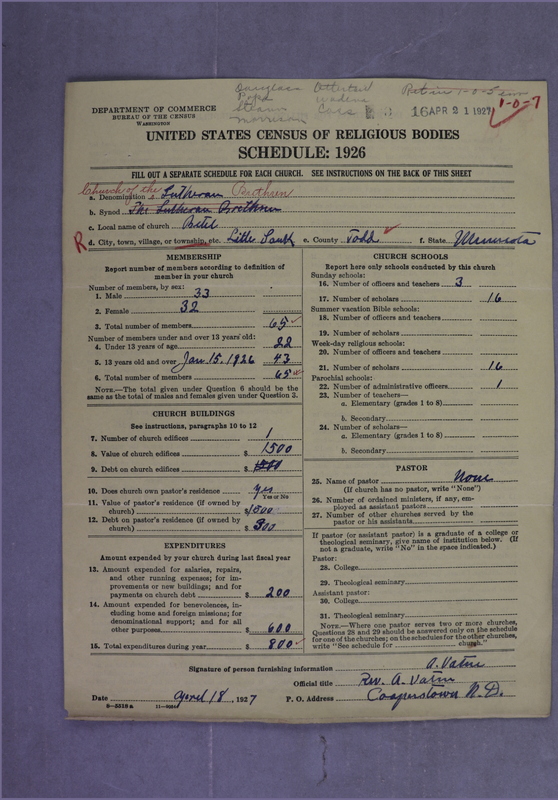 Douglass Ottertail Ret in 1-0-5
Pope Wadena
Stearn Cass
Morrison
16 APR 21 1927
1-0-7
DEPARTMENT OF COMMERCE
BUREAU OF THE CENSUS
WASHINGTON
UNITED STATES CENSUS OF RELIGIOUS BODIES
SCHEDULE: 1926
FILL OUT A SEPARATE SCHEDULE FOR EACH CHURCH. SEE INSTRUCTIONS ON THE BACK OF THIS SHEET
Church of the
a. Denomination Lutheran Brethren
b. Synod The Lutheran Brethren
c. Local name of church Betel
R d. City, town, village, or township, etc. Little Sauk e. County Todd f. State Minnesota
MEMBERSHIP
Report number of members according to definition of
member in your church
Number of members, by sex:
1. Male 33
2. Female 32
3. Total number of members 65
Number of members under and over 13 years old:
4. Under 13 years of age 22
5. 13 years old and over Jan. 15. 1926 43
6. Total number of members 65
NOTE.—The total given under Question 6 should be the
same as the total of males and females given under Question 3.
CHURCH BUILDINGS
See instructions, paragraphs 10 to 12
7. Number of church edifices 1
8. Value of church edifices $ 1500
9. Debt on church edifices $
10. Does church own pastor's residence yes
Yes or No
11. Value of pastor's residence (if owned by
church) $
12. Debt on pastor's residence (if owned by
church) $
EXPENDITURES
Amount expended by your church during last fiscal year
13. Amount expended for salaries, repairs,
and other running expenses; for im-
provements or new buildings; and for
payments on church debt $ 200
14. Amount expended for benevolences, in-
cluding home and foreign missions; for
denominational support; and for all
other purposes $ 600
15. Total expenditures during year $ 800
CHURCH SCHOOLS
Report here only schools conducted by this church
Sunday schools:
16. Number of officers and teachers 3
17. Number of scholars 16
Summer vacation Bible schools:
18. Number of officers and teachers
19. Number of scholars
Week-day religious schools:
20. Number of officers and teachers
21. Number of scholars 16
Parochial schools:
22. Number of administrative officers 1
23. Number of teachers—
a. Elementary (grades 1 to 8)
b. Secondary
24. Number of scholars—
a. Elementary (grades 1 to 8)
b. Secondary
PASTOR
25. Name of pastor None
(If church has no pastor, write "None")
26. Number of ordained ministers, if any, em-
ployed as assistant pastors
27. Number of other churches served by the
pastor or his assistants
If pastor (or assistant pastor) is a graduate of a college or
theological seminary, give name of institution below. (If
not a graduate, write "No" in the space indicated.)
Pastor:
28. College
29. Theological seminary
Assistant pastor:
30. College
31. Theological seminary
NOTE.—Where one pastor serves two or more churches,
Questions 28 and 29 should be answered only on the schedule
for one of the churches; on the schedules for the other churches,
write "See schedule for church."
Signature of person furnishing information A. Vatne
Official title Rev. A. Vatne
Date April 18, 1927 P. O. Address Cooperstown N.D.
8—5518 a